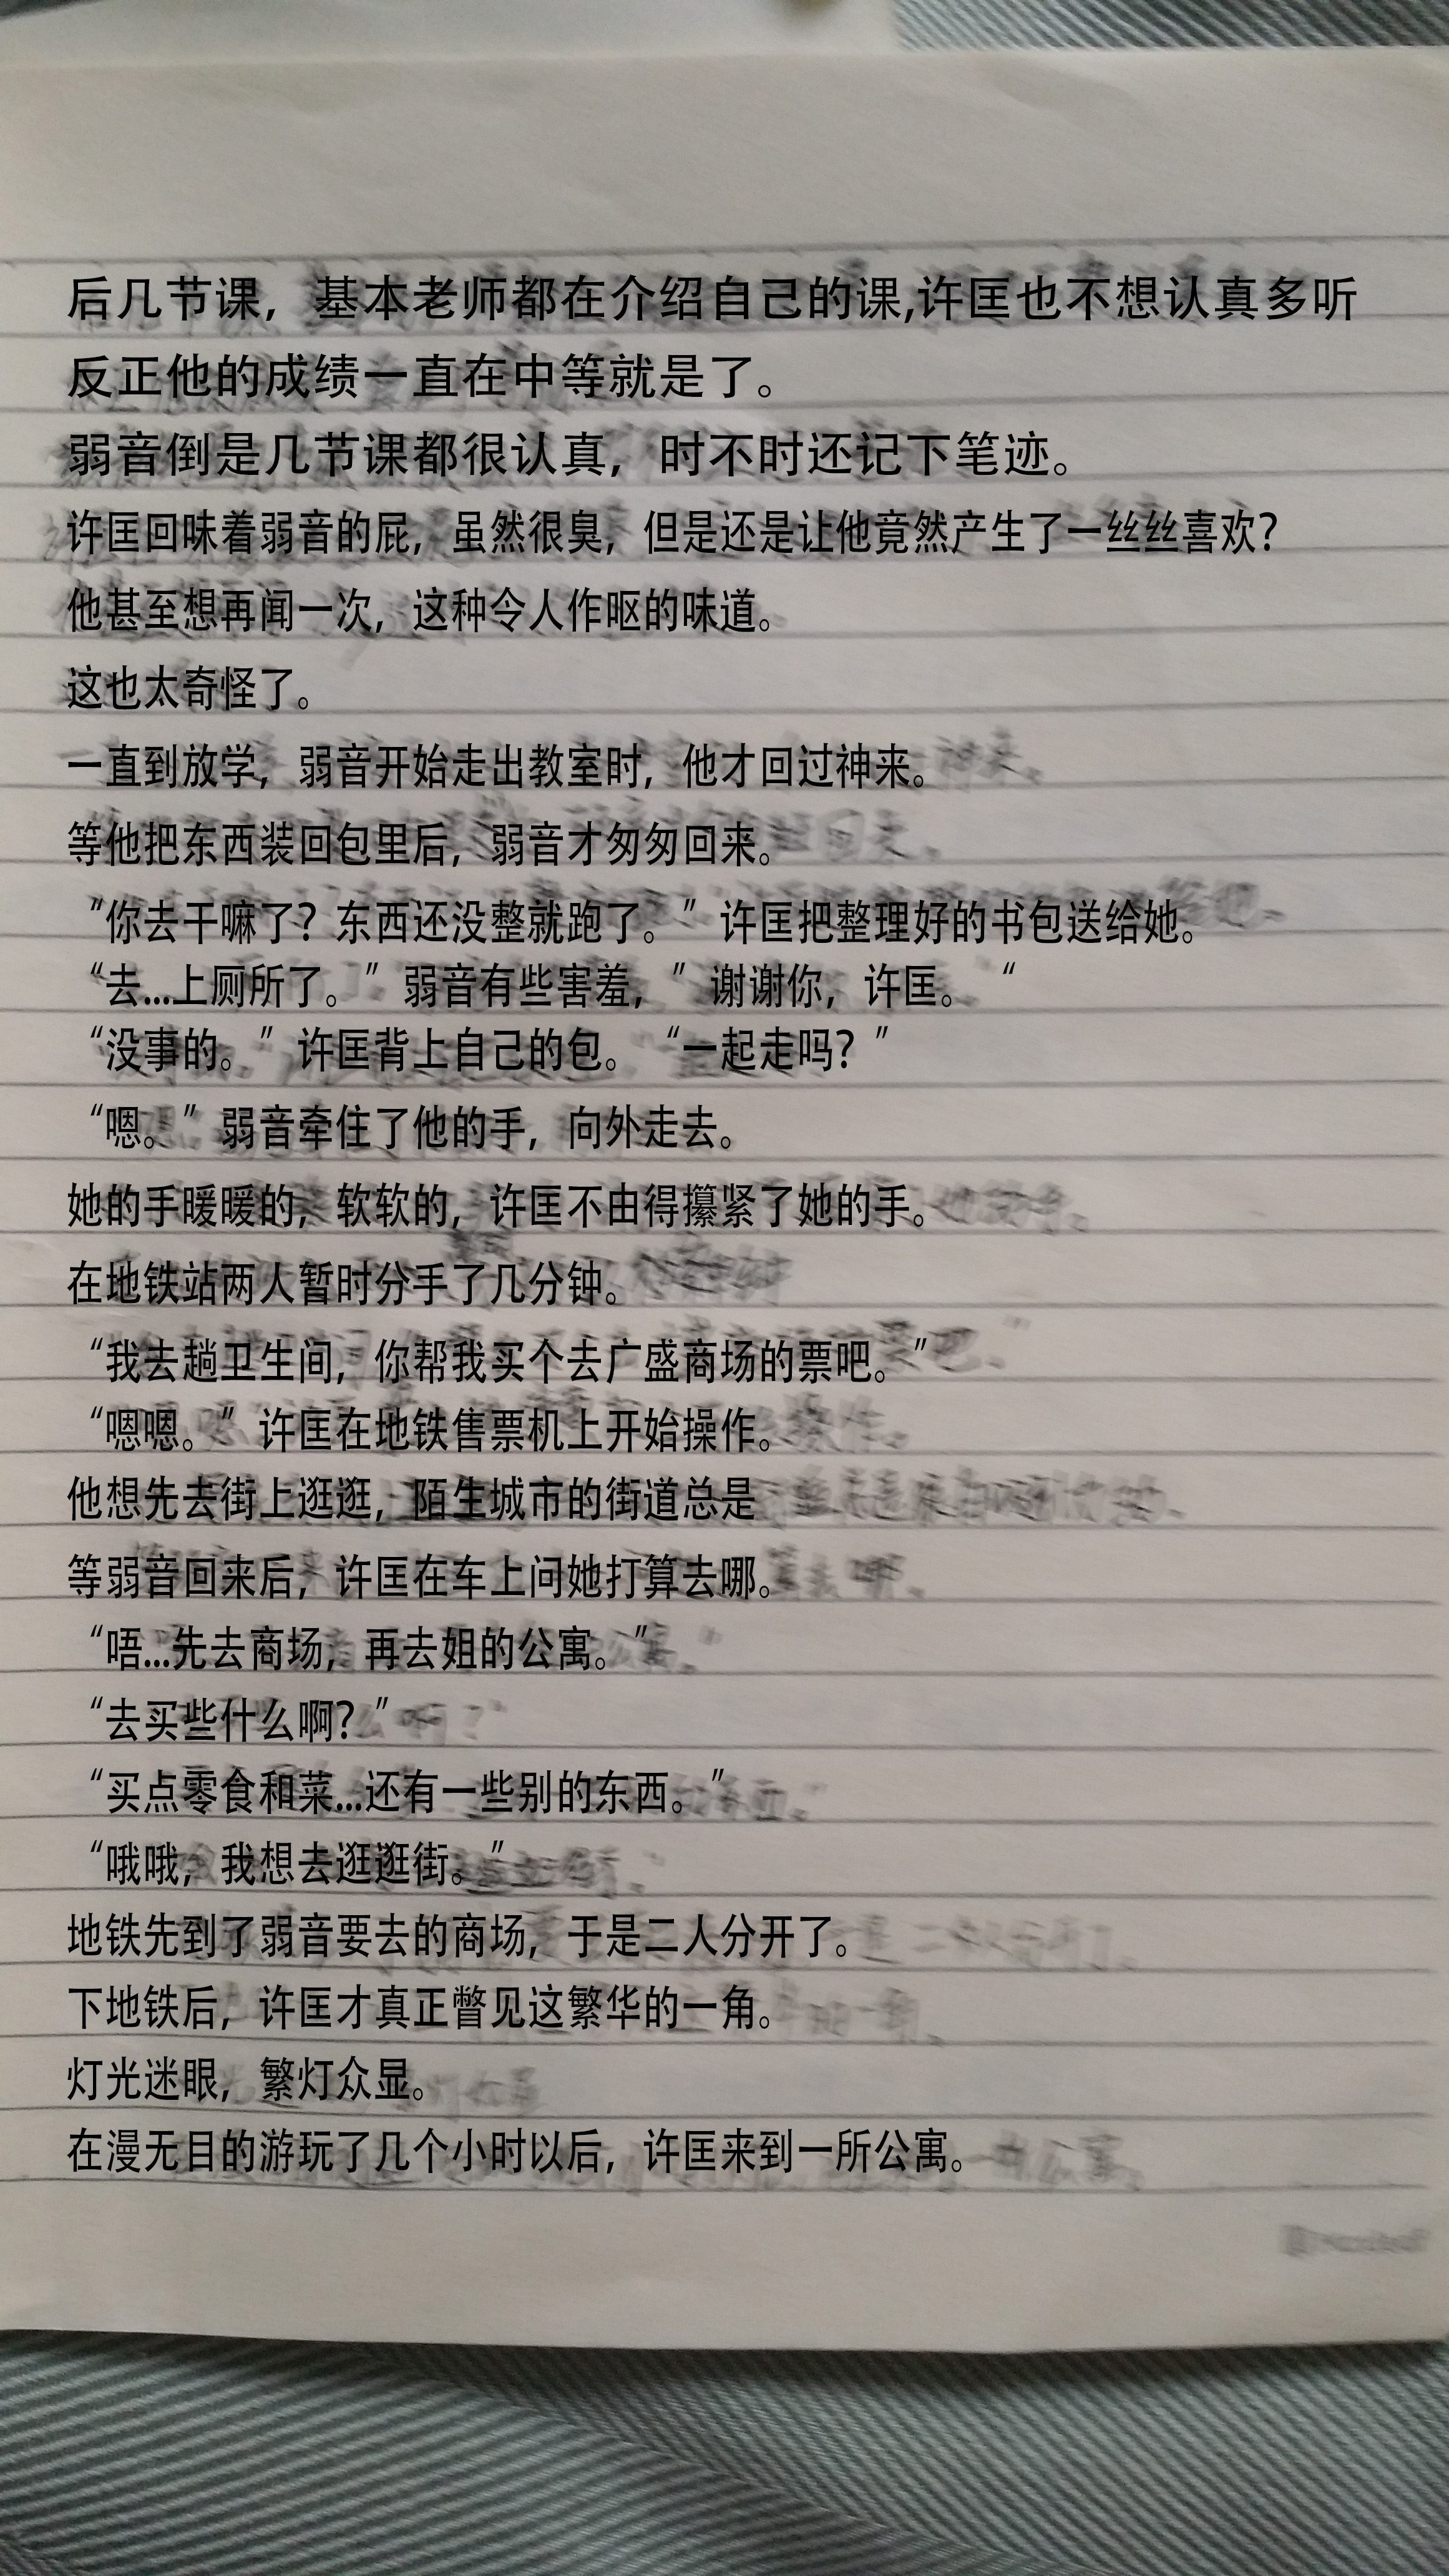 后几节课，基本老师都在介绍自己的课,许匡也不想认真多听
反正他的成绩一直在中等就是了。
弱音倒是几节课都很认真，时不时还记下笔迹。
许匡回味着弱音的屁，虽然很臭，但是还是让他竟然产生了一丝丝喜欢？
他甚至想再闻一次，这种令人作呕的味道。
这也太奇怪了。
一直到放学，弱音开始走出教室时，他才回过神来。
等他把东西装回包里后，弱音才匆匆回来。
”你去干嘛了？东西还没整就跑了。”许匡把整理好的书包送给她。
“去...上厕所了。”弱音有些害羞，”谢谢你，许匡。“
“没事的。”许匡背上自己的包。“一起走吗？”
“嗯。”弱音牵住了他的手，向外走去。
她的手暖暖的，软软的，许匡不由得攥紧了她的手。
在地铁站两人暂时分手了几分钟。
“我去趟卫生间，你帮我买个去广盛商场的票吧。”
“嗯嗯。”许匡在地铁售票机上开始操作。
他想先去街上逛逛，陌生城市的街道总是
等弱音回来后，许匡在车上问她打算去哪。
“唔...先去商场，再去姐的公寓。”
“去买些什么啊？”
“买点零食和菜...还有一些别的东西。”
“哦哦，我想去逛逛街。”
地铁先到了弱音要去的商场，于是二人分开了。
下地铁后，许匡才真正瞥见这繁华的一角。
灯光迷眼，繁灯众显。
在漫无目的游玩了几个小时以后，许匡来到一所公寓。